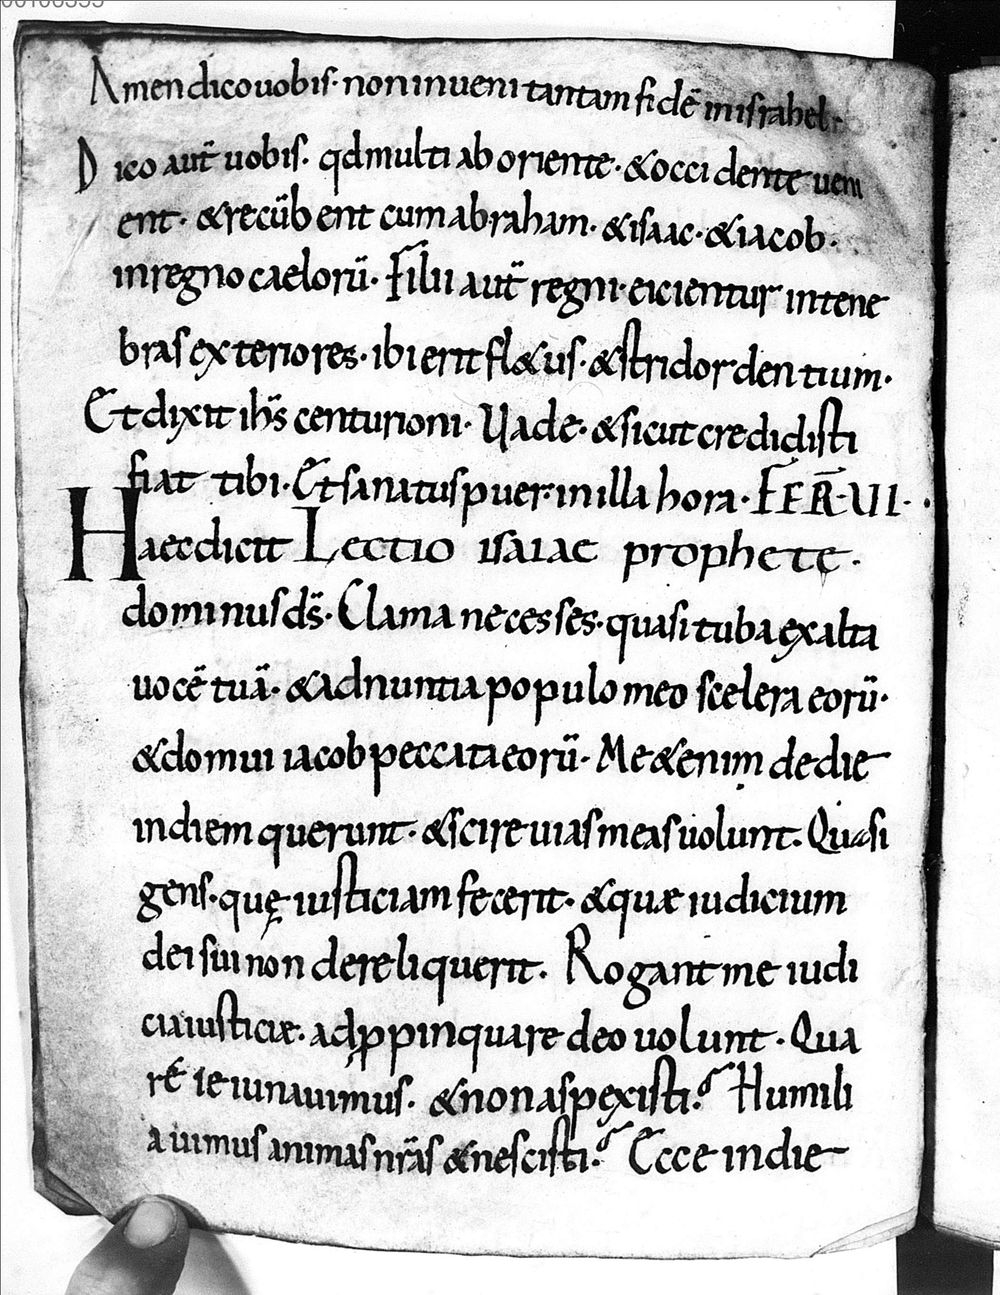 Amen dico uobis· non inueni tantam fidē in israhel·
Dico aut̄ uobis· qd multi ab oriente· & occidente ueni
ent· & recūbent cum abraham· & isaac· & iacob·
in regno caelorū· Filii aut̄ regni· eicientur in tene
bras exteriores· ibi erit fl&us· & stridor dentium·
Et dixit ih̄s centurioni· Uade· & sicut credidisti
fiat tibi· Et sanatus puer· in illa hora· FER̄·VI·
Haec dicit Lectio isaiae prophetę·
dominus ds̄· Clama ne cesses· quasi tuba exalta
uocē tuā· & adnuntia populo meo scelera eorū·
& domui iacob peccata eorū· Me &enim de die
in diem querunt· & scire uias meas uolunt· Quasi
gens· quę iusticiam fecerit· & quae iudicium
dei sui non dereliquerit· Rogant me iudi
cia iusticiae· adp̱pinquare deo uolunt· Qua
rē ieiunauimus· & non aspexisti? Humili
auimus animas nr̄as & nescisti? Ecce in die